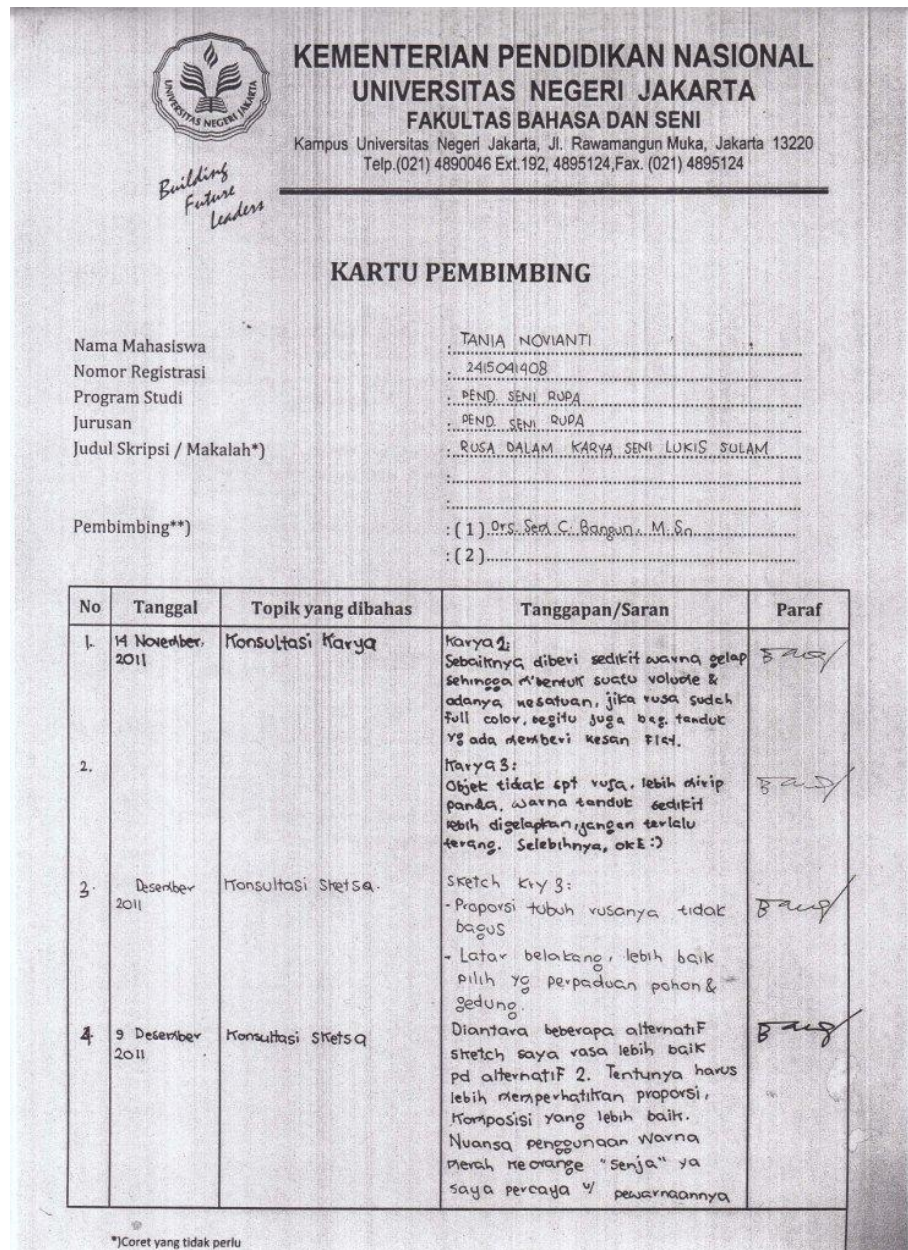 KEMENTERIAN PENDIDIKAN NASIONAL
UNIVERSITAS NEGERI JAKARTA
FAKULTAS BAHASA DAN SENI
Kampus Universitas Negeri Jakarta, Jl. Rawamangun Muka, Jakarta 13220
Telp.(021) 4890046 Ext.192, 4895124,Fax. (021) 4895124
UNIVERSITAS NEGERI JAKARTA
Building
Future
Leaders
KARTU PEMBIMBING
Nama Mahasiswa : TANIA NOVIANTI
Nomor Registrasi : 2415041408
Program Studi : PEND. SENI RUPA
Jurusan : PEND. SENI RUPA
Judul Skripsi / Makalah*) : RUSA DALAM KARYA SENI LUKIS SULAM
:
:
Pembimbing**) : (1) Drs. C. Bangun, M.Sn
: (2)
No Tanggal Topik yang dibahas Tanggapan/Saran Paraf
1. 14 November, 2011 Konsultasi Karya
Karya 1:
Sebaiknya diberi sedikit warna gelap
sehingga m'bentuk suatu volume &
adanya kesatuan, jika rusa sudah
full color, begitu juga bag. tanduk
yg ada memberi kesan Flat.
2.
Karya 3:
Objek tidak spt rusa, lebih mirip
panda, warna tanduk sedikit
lebih digelapkan, jangan terlalu
terang. Selebihnya, okE :)
3. Desember 2011 Konsultasi Sketsa.
Sketch Kry 3:
- Proporsi tubuh rusanya tidak
bagus
- Latar belakang, lebih baik
pilih yg perpaduan pohon &
gedung.
4 9 Desember 2011 Konsultasi Sketsa
Diantara beberapa alternatiF
sketch saya rasa lebih baik
pd alternatiF 2. Tentunya harus
lebih memperhatikan proporsi,
Komposisi yang lebih baik.
Nuansa penggunaan Warna
merah keorange "senja" ya
saya percaya u/ pewarnaannya
*)Coret yang tidak perlu